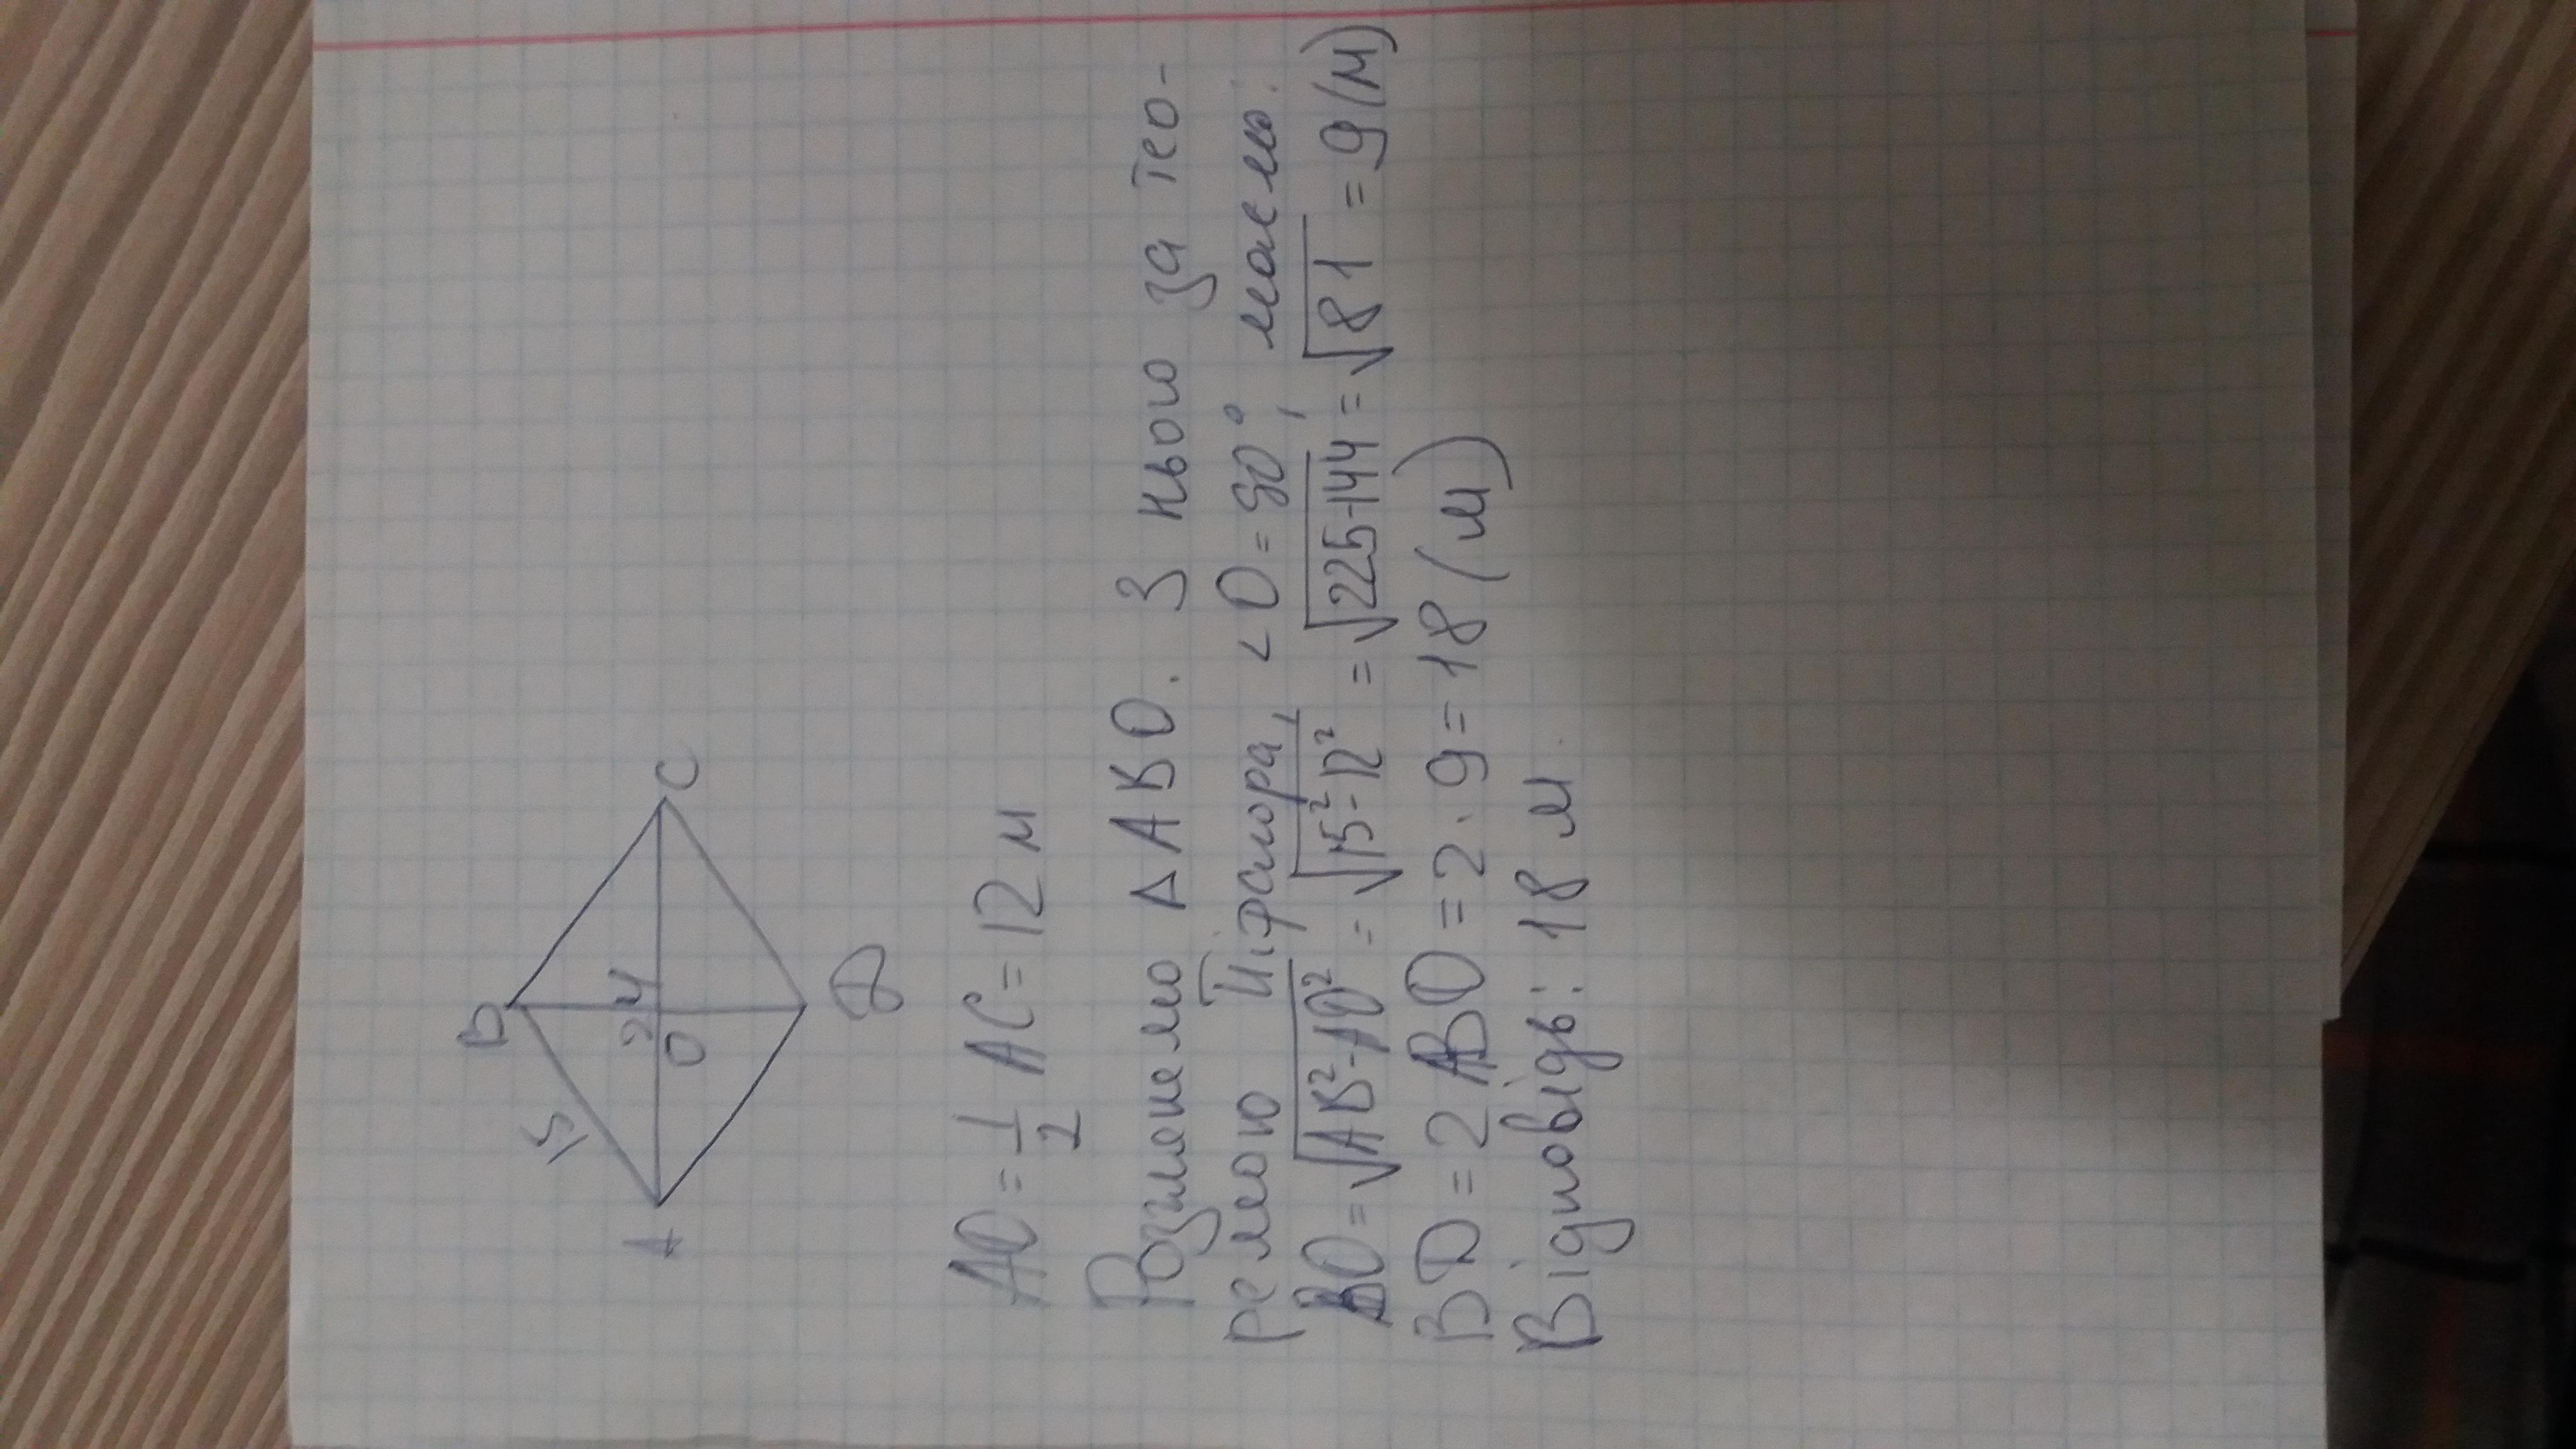 B
15
24
A
O
C
D
AO = 1/2 AC = 12 м
Розглянемо △ ABO. З нього за тео-
ремою Піфагора, ∠O = 90°, маємо:
BO = √AB² - AO² = √15² - 12² = √225 - 144 = √81 = 9 (м)
BD = 2 BO = 2 · 9 = 18 (м)
Відповідь: 18 м.